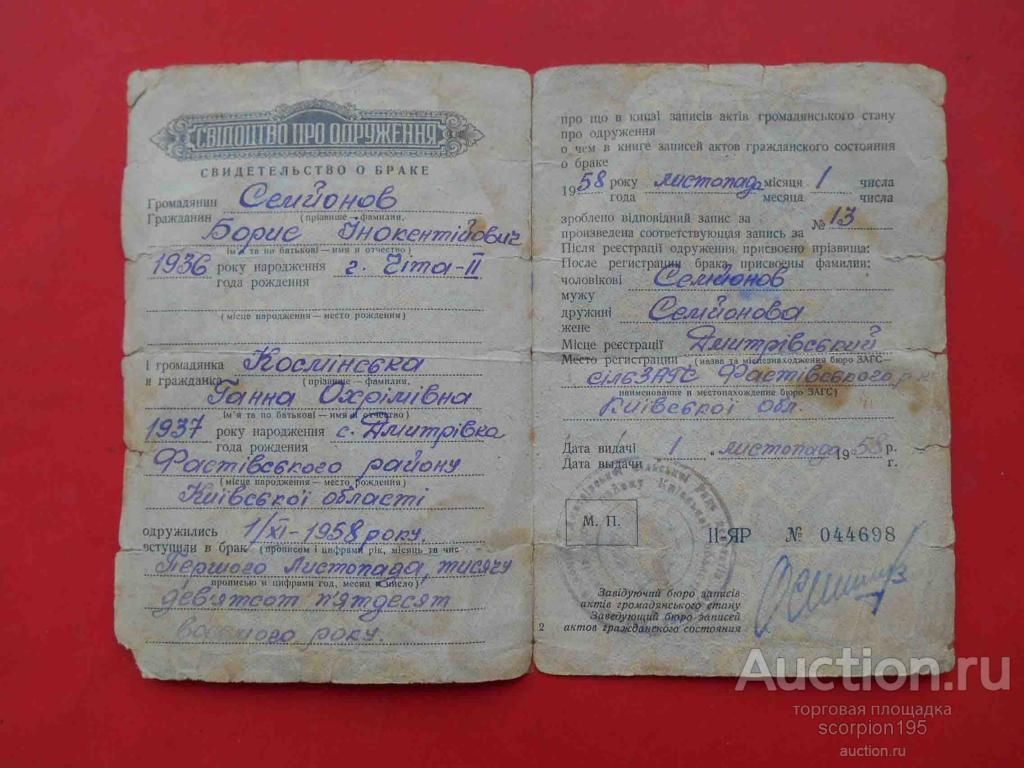 СВІДОЦТВО ПРО ОДРУЖЕННЯ
СВИДЕТЕЛЬСТВО О БРАКЕ
Громадянин Семйонов
Гражданин
(прізвище — фамилия,
Борис Інокентійович
ім'я та по батькові — имя и отчество)
1936 року народження г. Чіта-ІІ
года рождения
(місце народження — место рождения)
і громадянка Космінська
и гражданка
(прізвище — фамилия,
Ганна Охрімівна
ім'я та по батькові — имя и отчество)
1937 року народження с. Дмитрівка
года рождения
Фастівського району
(місце народження — место рождения)
Київської області
одружились 1/XI-1958 року.
вступили в брак (прописом і цифрами рік, місяць та чис
Першого листопада, тисячу
прописью и цифрами год, месяц и число)
дев'ятсот п'ятдесят
восьмого року.
про що в книзі записів актів громадянського стану
про одруження
о чем в книге записей актов гражданского состояния
о браке
1958 року листопад місяця 1 числа
года месяца числа
зроблено відповідний запис за № 13
произведена соответствующая запись за
Після реєстрації одруження, присвоєно прізвища:
После регистрации брака, присвоены фамилии:
чоловікові Семйонов
мужу
дружині Семйонова
жене
Місце реєстрації Дмитрівський
Место регистрации (назва та місцезнаходження бюро ЗАГС—
сільЗАГС Фастівського
наименование и местонахождение бюро ЗАГС)
Київської обл.
Дата видачі 1 „ листопада 1958 р.
Дата выдачи г.
М. П.
II-ЯР № 044698
Завідуючий бюро записів
актів громадянського стану
Заведующий бюро записей
актов гражданского состояния
2
Auction.ru
торговая площадка
scorpion195
auction.ru